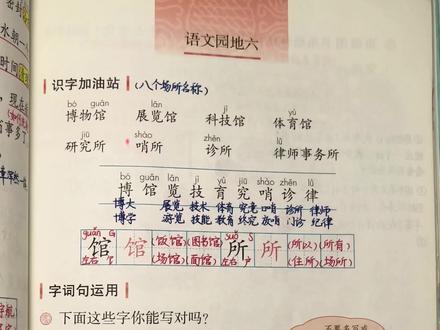 密封
水朝一
时间
现在
事多了
语文园地六
识字加油站 (八个场所名称)
bó guǎn lǎn jì yù
博物馆 展览馆 科技馆 体育馆
jiū shào zhěn lǜ
研究所 哨所 诊所 律师事务所
bó guǎn lǎn jì yù jiū shào zhěn lǜ
博 馆 览 技 育 究 哨 诊 律
博大 展览 技术 体育 究竟 口哨 诊所 律师
博学 游览 技能 教育 终究 放哨 门诊 纪律
guǎn G suǒ S
馆 馆 (饭馆)(图书馆) 所 所 (所以)(所有)
左右 饣 (场馆)(面馆) 左右 (住所)(场所)
字词句运用
下面这些字你能写对吗？
不要多写或